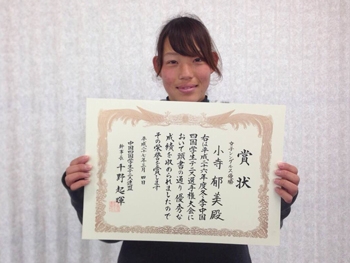 賞状
女子シングルス優勝
小寺 郁美殿
右は平成二六年度冬季中国
四国学生テニス選手権大会に
おいて頭書の通り優秀な
成績を収められましたので
その栄誉を賞します
平成二七年三月四日
中国四国学生テニス連盟
幹事長 千野 起暉